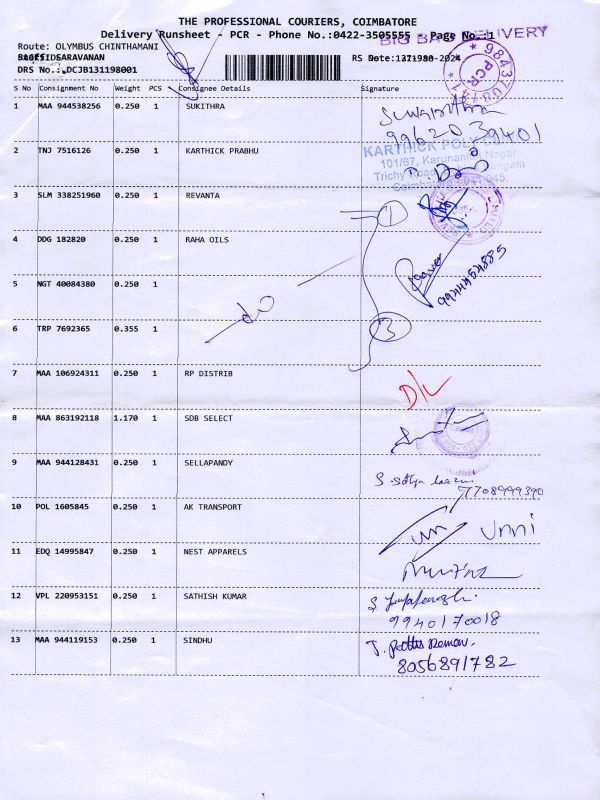 THE PROFESSIONAL COURIERS, COIMBATORE
Delivery Runsheet - PCR - Phone No.:0422-3505555 - Page No.:1
BIG BAG DELIVERY
Route: OLYMBUS CHINTHAMANI
SARAVANAN
DRS No.: DCJB131198001
S No Consignment No Weight PCS Consignee Details Signature
1 MAA 944538256 0.250 1 SUKITHRA
9962039401
2 TNJ 7516126 0.250 1 KARTHICK PRABHU
KARTHICK
101/67, Karunanidhi Nagar
Trichy Road
3 SLM 338251960 0.250 1 REVANTA
①
4 DDG 182820 0.250 1 RAHA OILS
5 NGT 40084380 0.250 1
do
6 TRP 7692365 0.355 1
③
7 MAA 106924311 0.250 1 RP DISTRIB
D/L
8 MAA 863192118 1.170 1 SDB SELECT
9 MAA 944128431 0.250 1 SELLAPANDY
7708999390
10 POL 1605845 0.250 1 AK TRANSPORT
Unni
11 EDQ 14995847 0.250 1 NEST APPARELS
12 VPL 220953151 0.250 1 SATHISH KUMAR
9940170018
13 MAA 944119153 0.250 1 SINDHU
8056891782